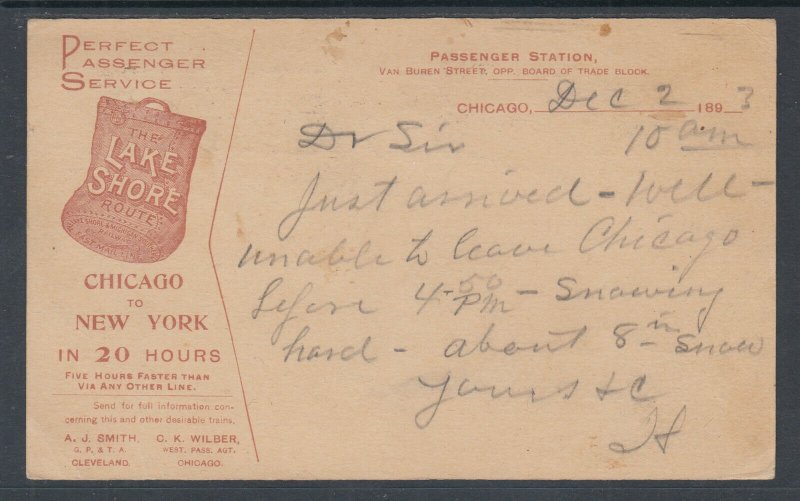 PERFECT
PASSENGER
SERVICE
THE
LAKE
SHORE
ROUTE
FAST MAIL LINE
CHICAGO
TO
NEW YORK
IN 20 HOURS
FIVE HOURS FASTER THAN
VIA ANY OTHER LINE.
Send for full information con-
cerning this and other desirable trains.
A. J. SMITH,
G. P. & T. A.
CLEVELAND.
C. K. WILBER,
WEST. PASS. AGT.
CHICAGO.
PASSENGER STATION,
VAN BUREN STREET, OPP. BOARD OF TRADE BLOCK.
CHICAGO, Dec 2 1893
Dr Sir 10 am
Just arrived - Well -
unable to leave Chicago
before 4-50 PM - Snowing
hard - about 8 in Snow
Yours &c
H